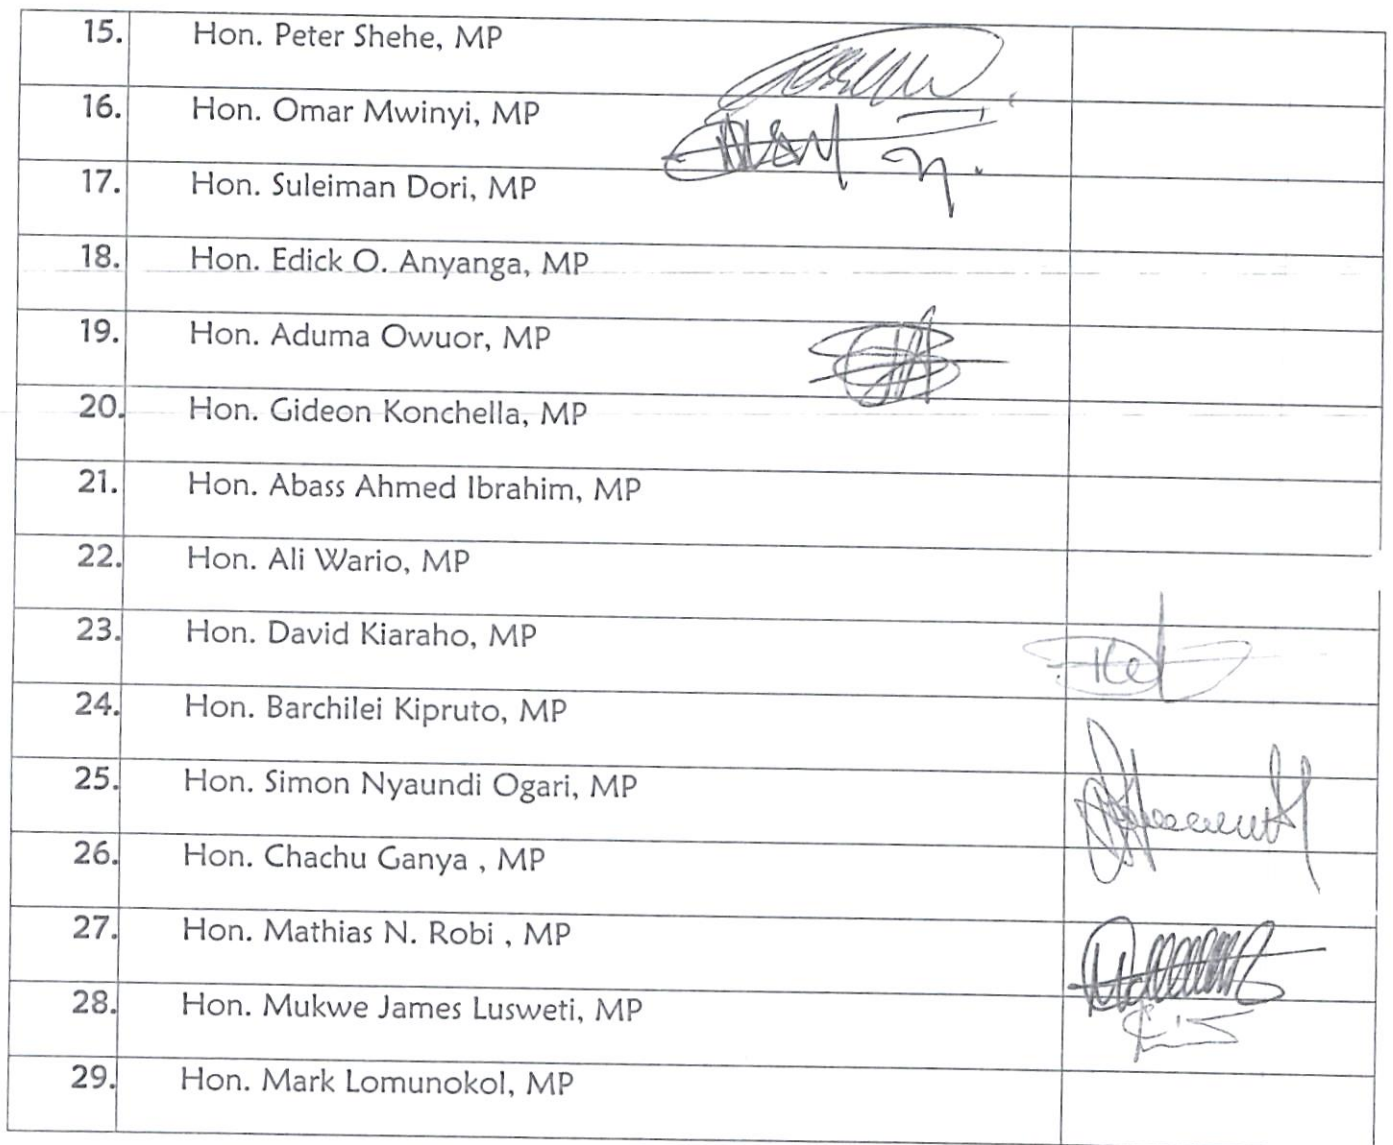 15. Hon. Peter Shehe, MP
16. Hon. Omar Mwinyi, MP
17. Hon. Suleiman Dori, MP
18. Hon. Edick O. Anyanga, MP
19. Hon. Aduma Owuor, MP
20. Hon. Gideon Konchella, MP
21. Hon. Abass Ahmed Ibrahim, MP
22. Hon. Ali Wario, MP
23. Hon. David Kiaraho, MP
24. Hon. Barchilei Kipruto, MP
25. Hon. Simon Nyaundi Ogari, MP
26. Hon. Chachu Ganya , MP
27. Hon. Mathias N. Robi , MP
28. Hon. Mukwe James Lusweti, MP
29. Hon. Mark Lomunokol, MP